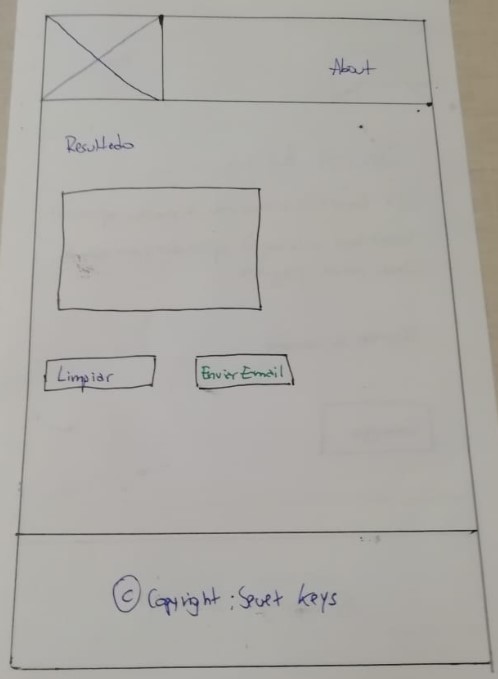 About
Resultado
Limpiar
Enviar Email
© Copyright : Secret Keys